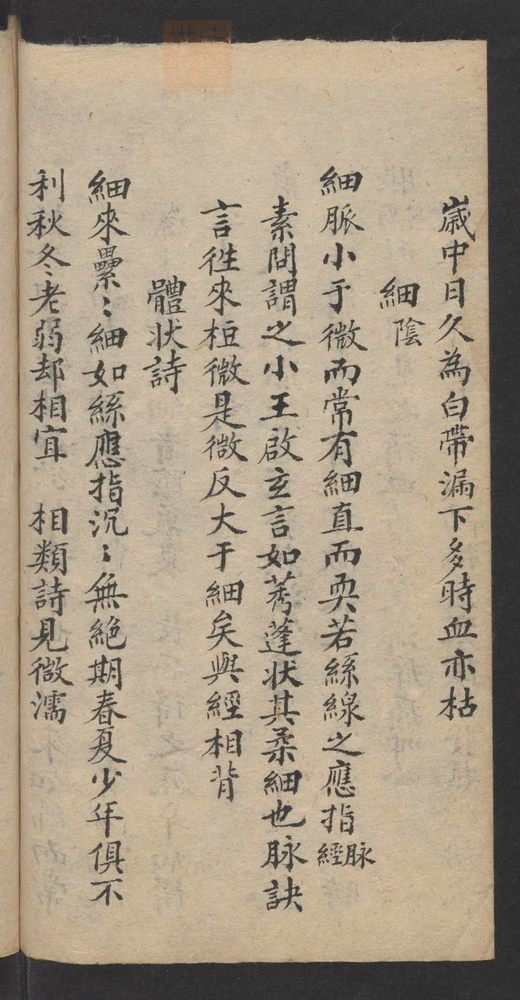 歲中日久為白帶漏下多時血亦枯
細陰
細脈小于微而常有細直而耎若絲線之應指脈經
素問謂之小王啟玄言如莠蓬狀其柔細也脉訣
言徃來極微是微反大于細矣與經相背
體狀詩
細來纍〻細如絲應指沉〻無絕期春夏少年俱不
利秋冬老弱却相宜　相類詩見微濡